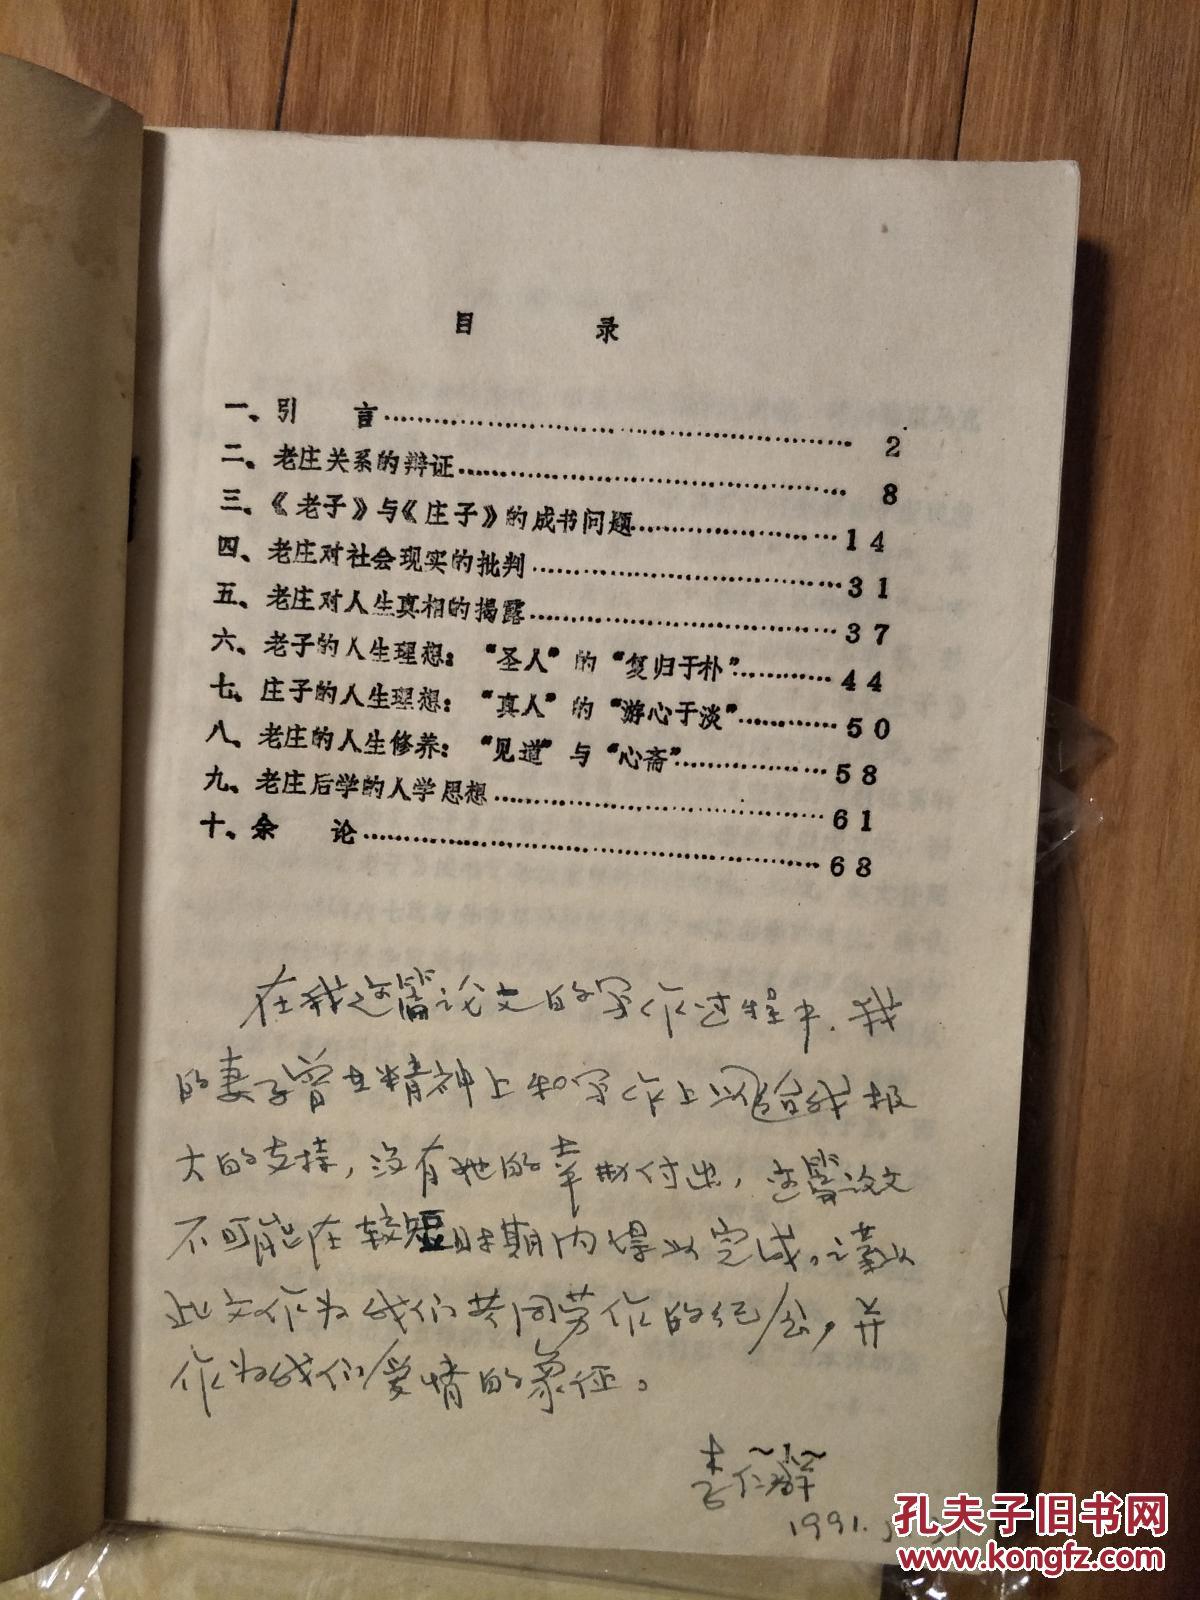 目 录
一、引 言……………………………………………… 2
二、老庄关系的辩证……………………………………… 8
三、《老子》与《庄子》的成书问题…………………… 14
四、老庄对社会现实的批判……………………………… 31
五、老庄对人生真相的揭露……………………………… 37
六、老子的人生理想：“圣人”的“复归于朴”………… 44
七、庄子的人生理想：“真人”的“游心于淡”………… 50
八、老庄的人生修养：“见道”与“心斋”……………… 58
九、老庄后学的人学思想………………………………… 61
十、余 论……………………………………………… 68
在我这篇论文的写作过程中，我
的妻子曾在精神上和写作上给我极
大的支持，没有她的辛勤付出，这篇论文
不可能在较短时期内得以完成。谨以
此文作为我们共同劳作的纪念，并
作为我们爱情的象征。
李仁群
1991.
孔夫子旧书网
www.kongfz.com